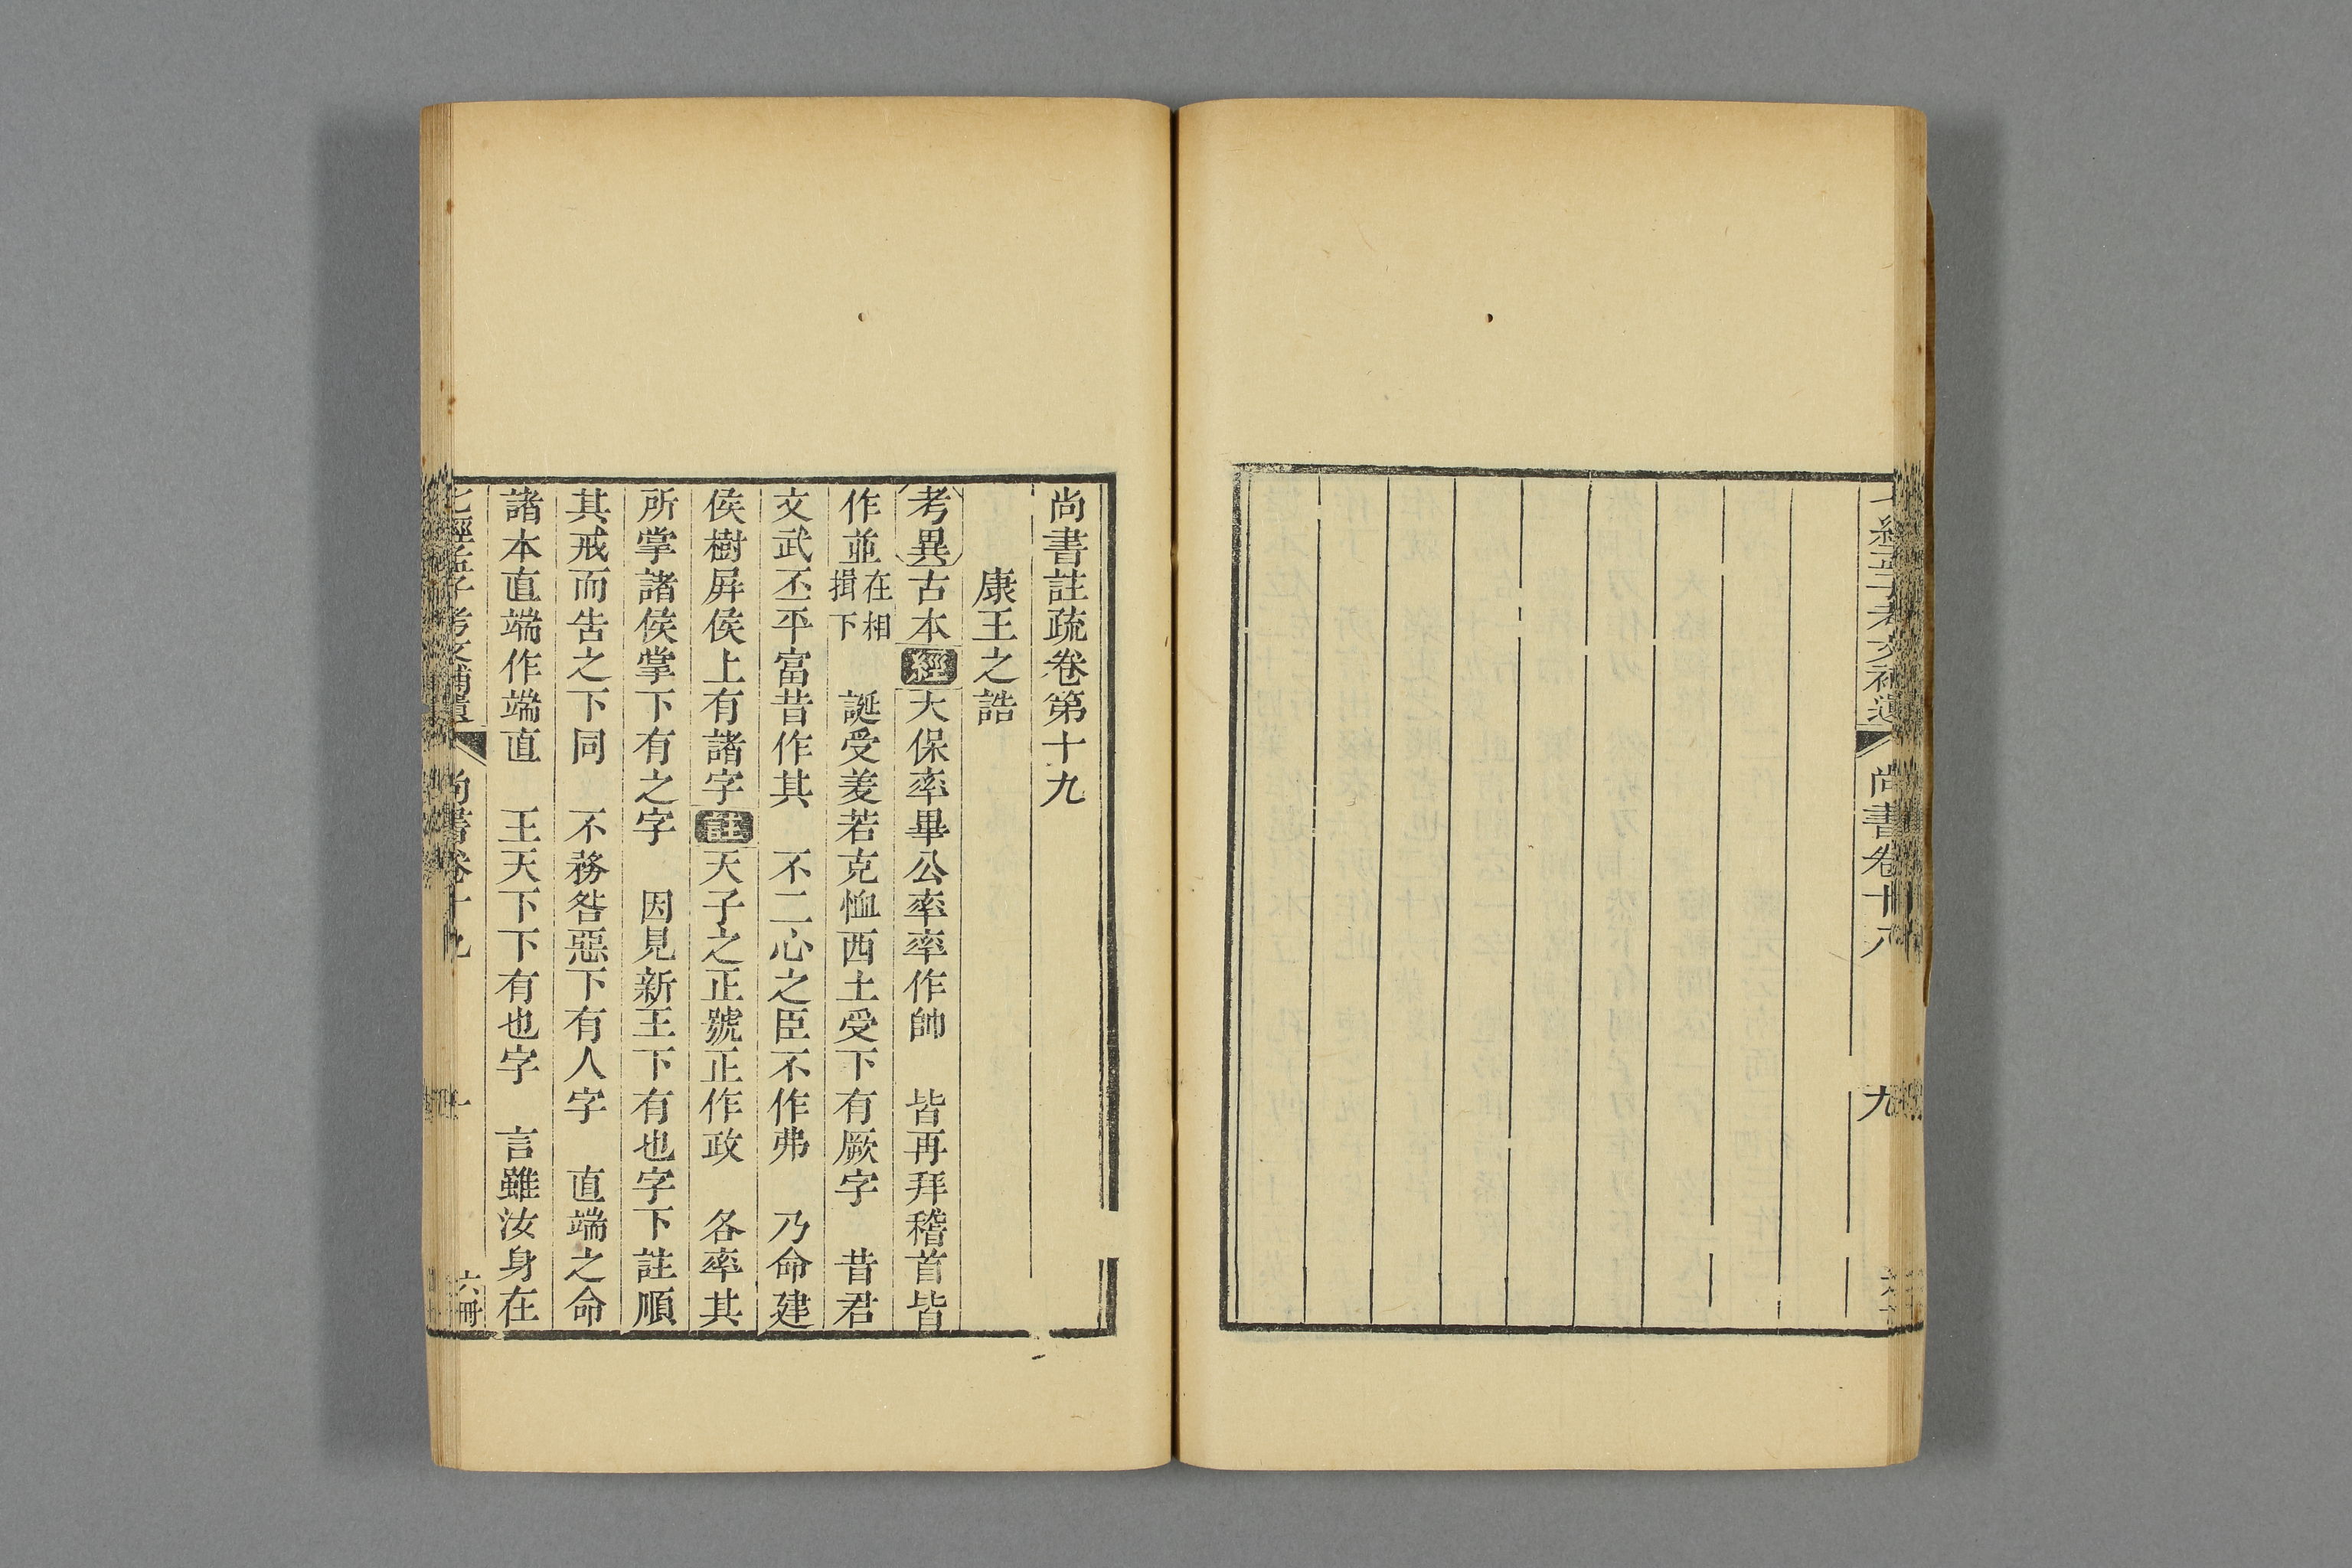 尚書卷十八
九
尚書註疏卷第十九
康王之誥
考異古本經大保率畢公率率作帥　皆再拜稽首皆
作並在相揖下　誕受羑若克恤西土受下有厥字　昔君
文武丕平富昔作其　不二心之臣不作弗　乃命建
侯樹屏侯上有諸字註天子之正號正作政　各率其
所掌諸侯掌下有之字　因見新王下有也字下註順
其戒而告之下同　不務咎惡下有人字　直端之命
諸本直端作端直　王天下下有也字　言雖汝身在
七經孟子考文補遺　尚書卷十九　六冊